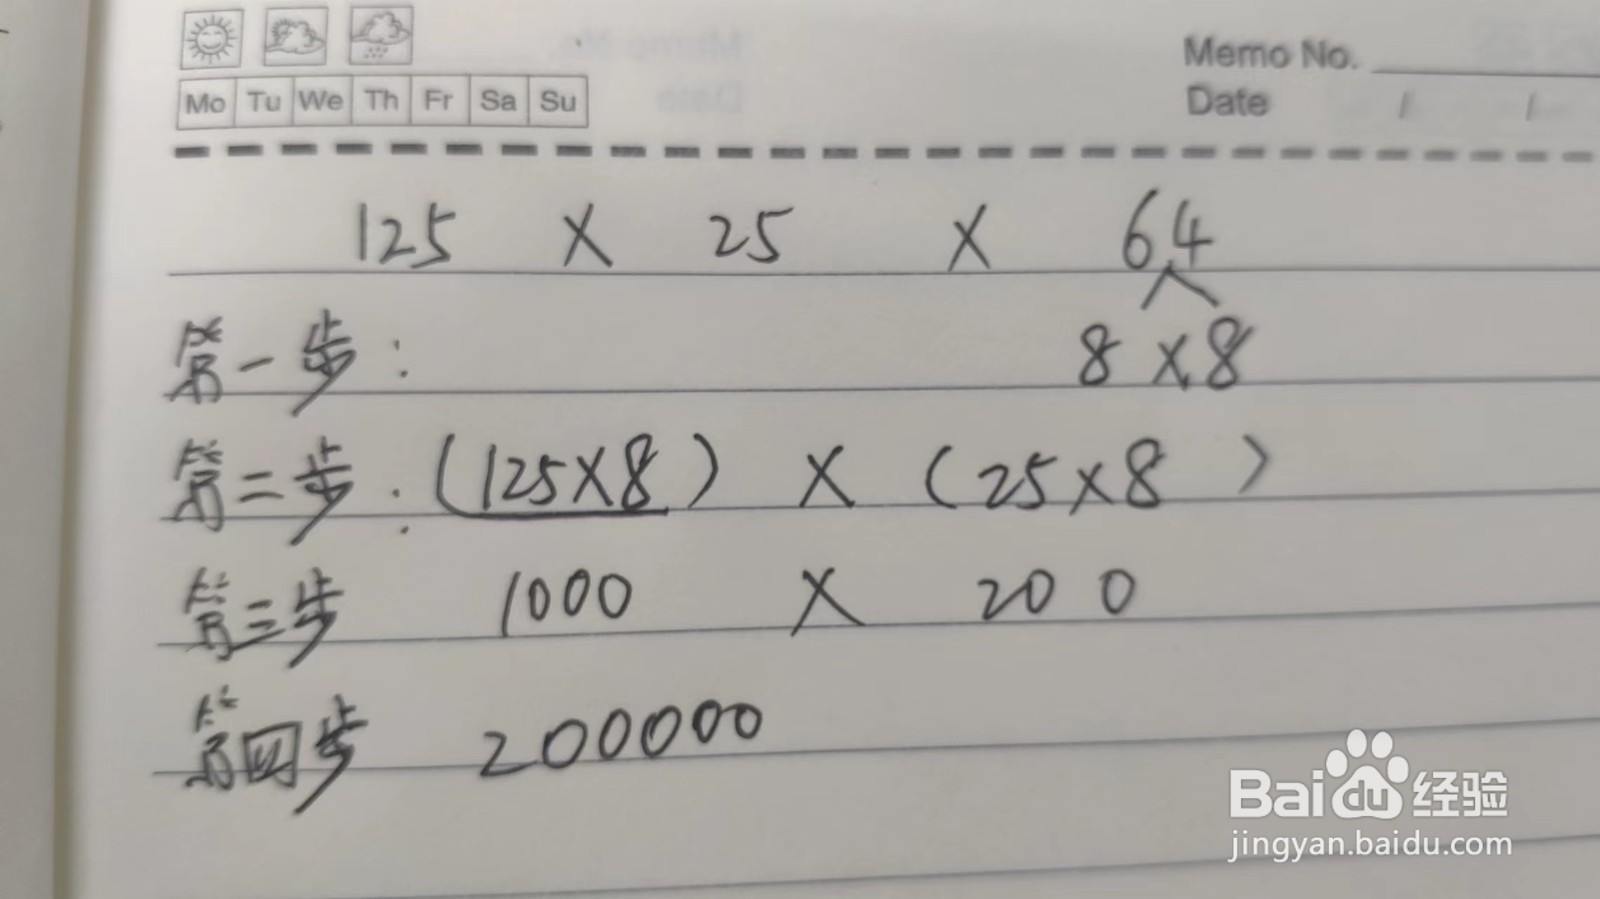 Memo No.
Mo Tu We Th Fr Sa Su
Date / /
125 × 25 × 64
第一步: 8 × 8
第二步: (125×8) × (25×8)
第三步 1000 × 200
第四步 200000
Baidu 经验
jingyan.baidu.com